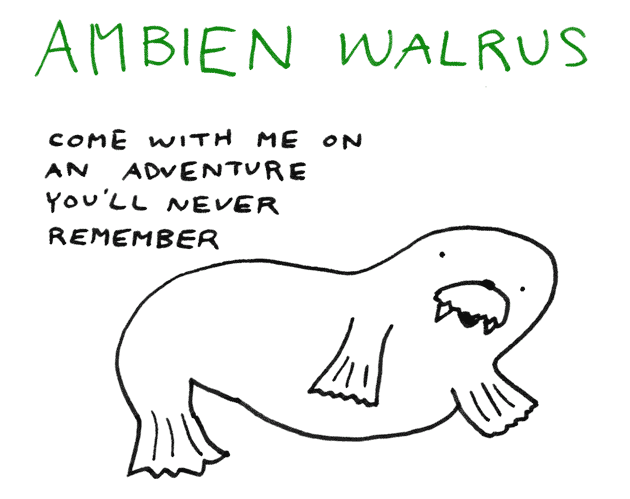 AMBIEN WALRUS
COME WITH ME ON
AN ADVENTURE
YOU'LL NEVER
REMEMBER